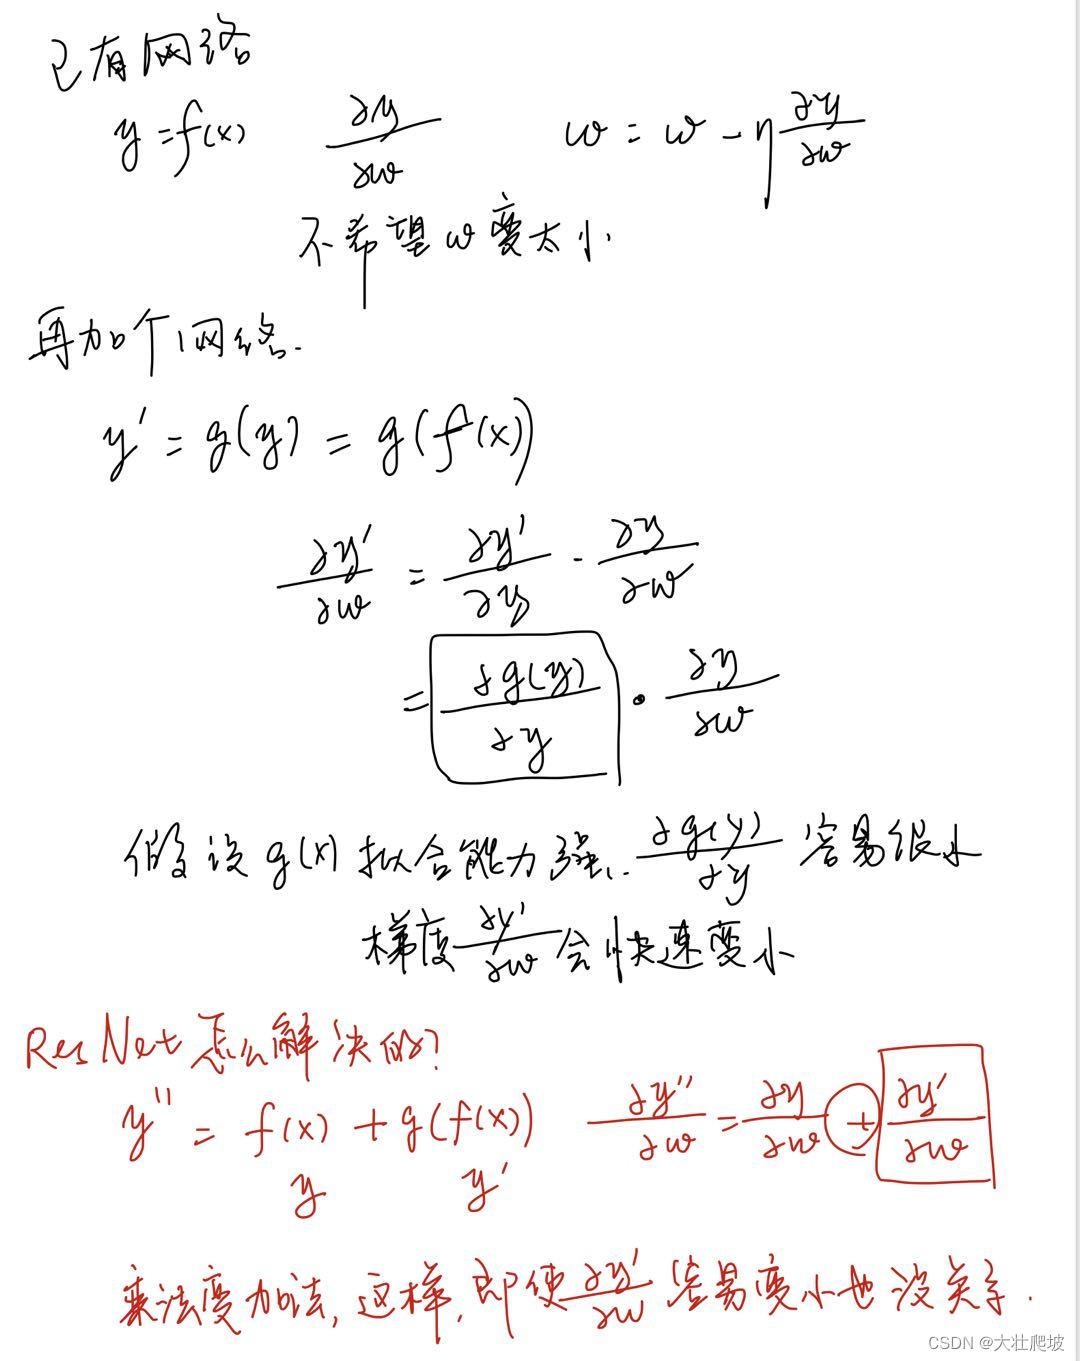 已有网络
y = f(x) ∂y/∂w w = w - η ∂y/∂w
不希望w变太小
再加个网络.
y' = g(y) = g(f(x))
∂y'/∂w = ∂y'/∂y · ∂y/∂w
= ∂g(y)/∂y · ∂y/∂w
假设g(x)拟合能力强, ∂g(y)/∂y 容易很小
梯度 ∂y'/∂w 会快速变小
ResNet怎么解决的?
y'' = f(x) + g(f(x)) ∂y''/∂w = ∂y/∂w + ∂y'/∂w
y y'
乘法变加法,这样,即使 ∂y'/∂w 容易变小也没关系.
CSDN @大壮爬坡